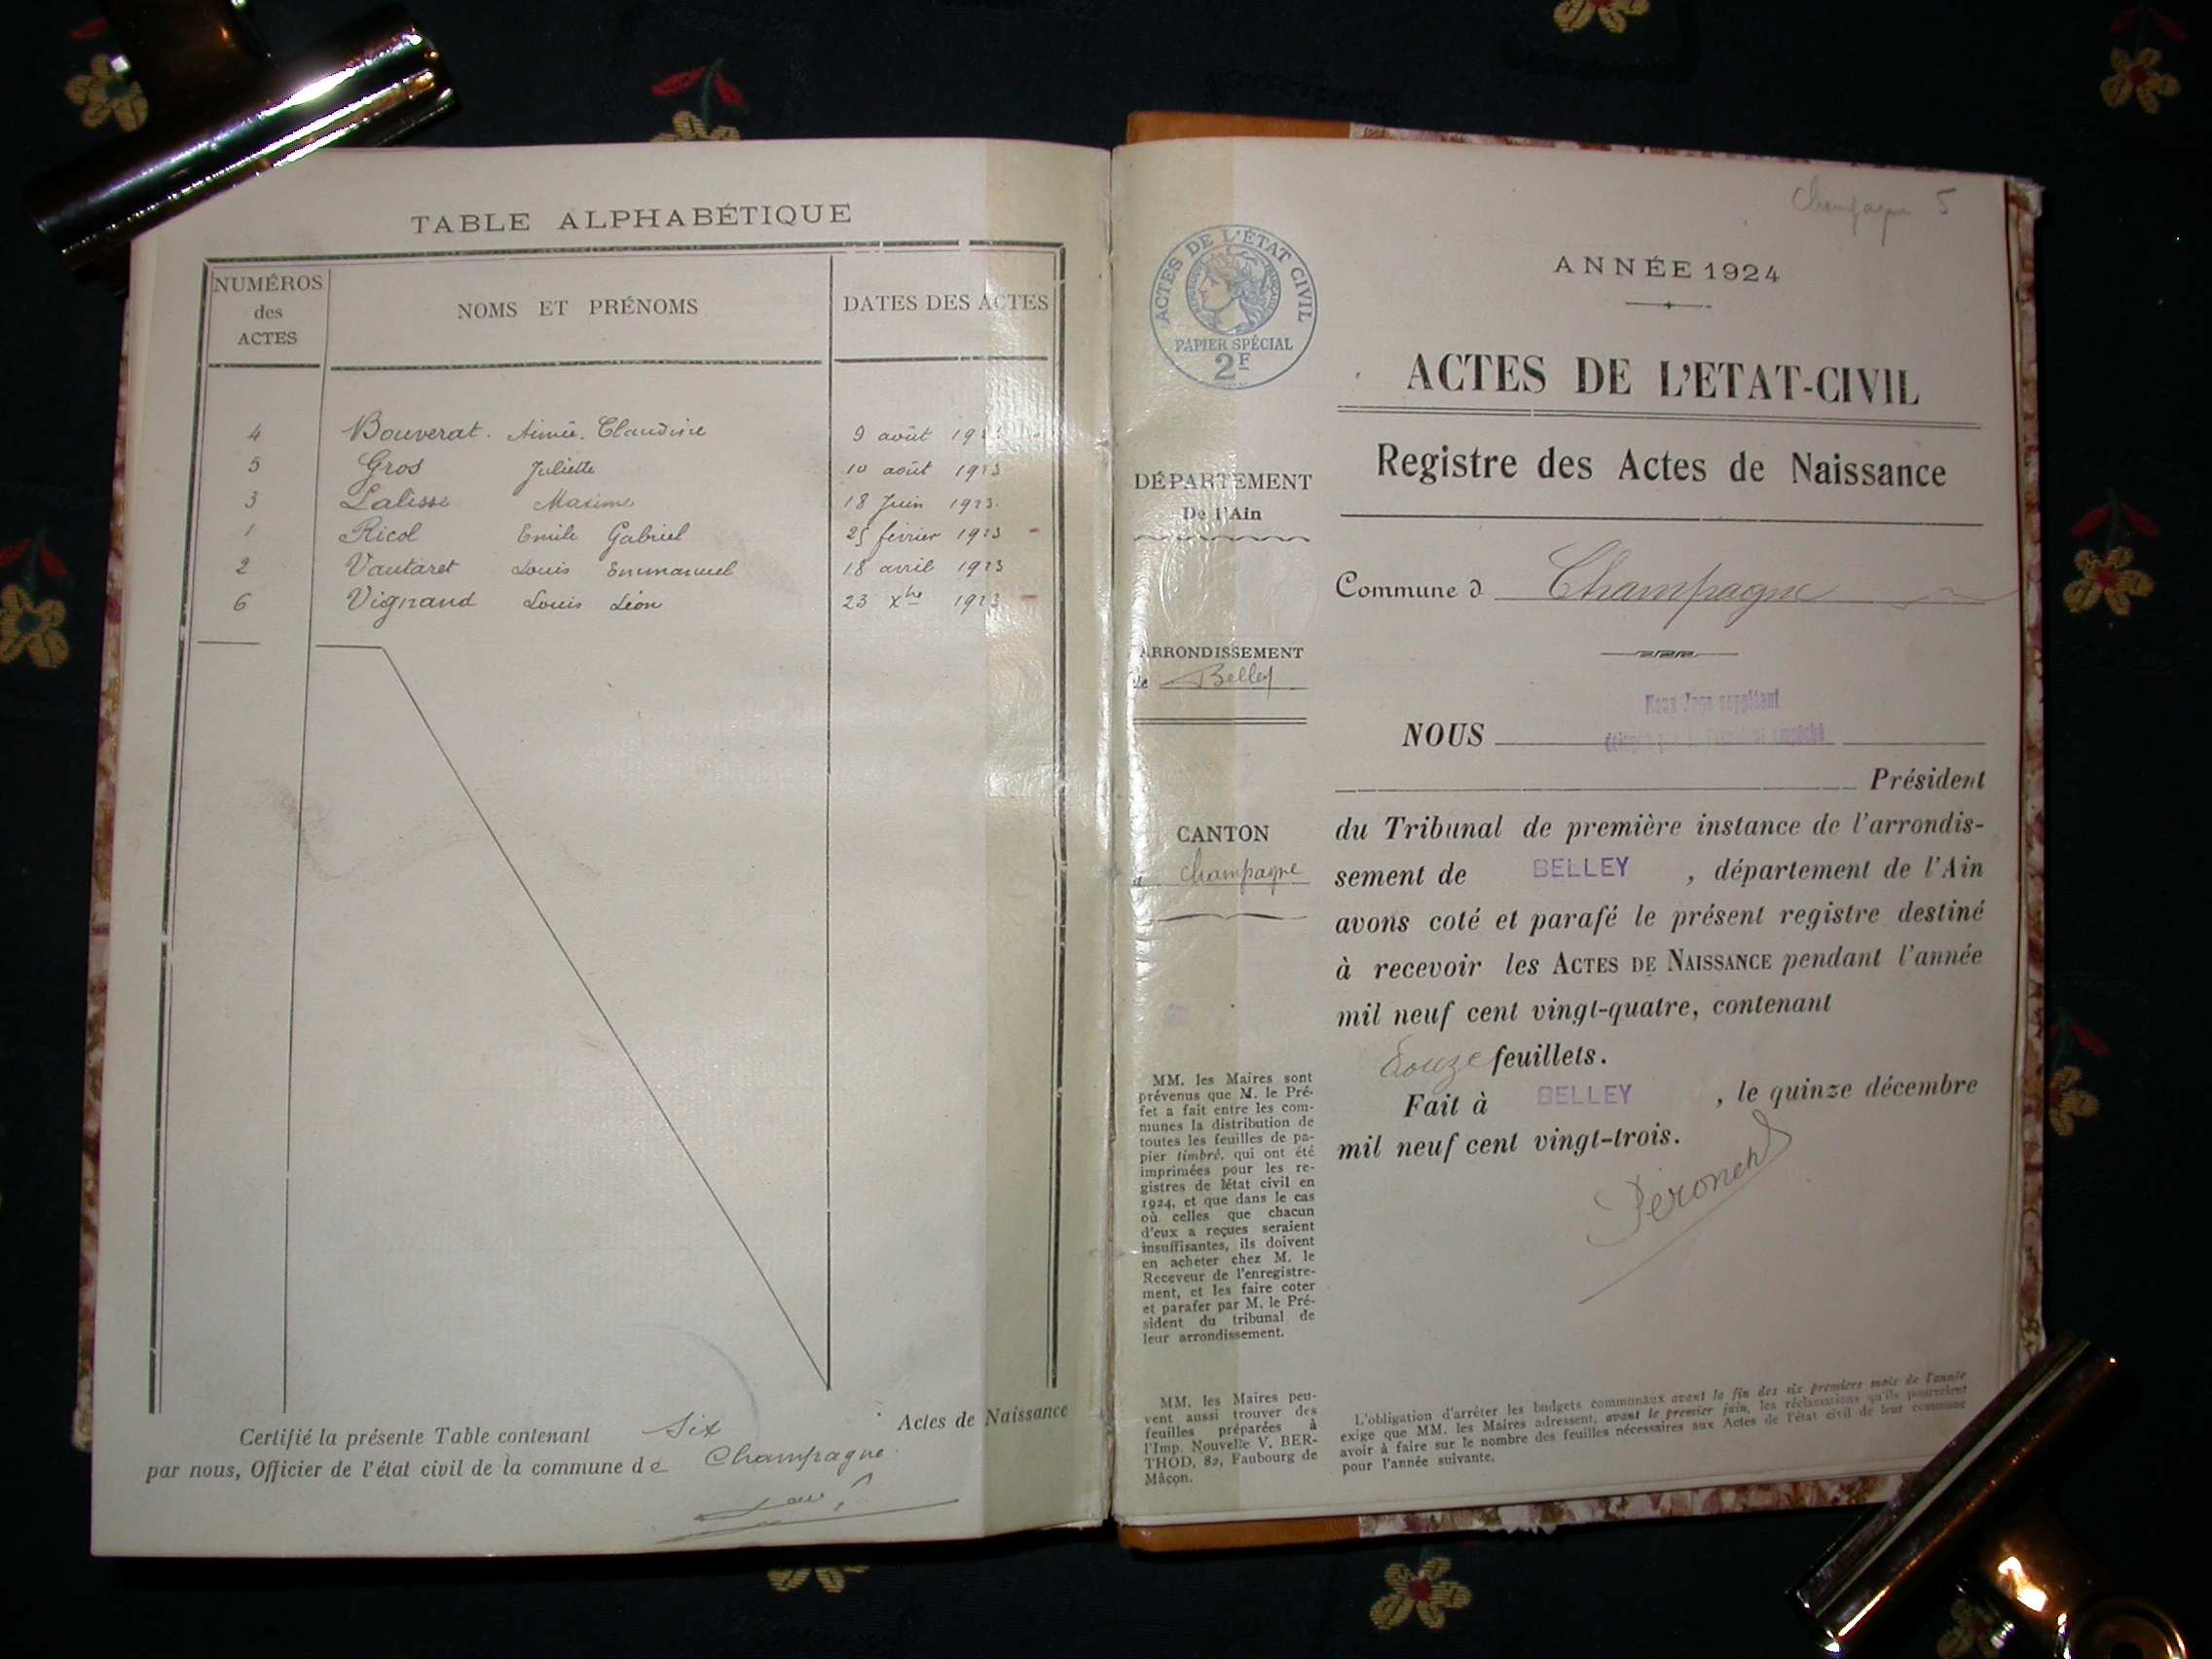 TABLE ALPHABÉTIQUE
NUMÉROS des ACTES
NOMS ET PRÉNOMS
DATES DES ACTES
4 Bouverat. Aimée. Claudine 9 août
5 Gros Juliette 10 août 1923
3 Maxime 18 Juin 1923.
1 Ricol Emile Gabriel 25 février 1923
2 Vautaret Louis Emmanuel 18 avril 1923
6 Vignand Louis Léon 23 Xbre 1923
Certifié la présente Table contenant Six Actes de Naissance
par nous, Officier de l'état civil de la commune de Champagne.
Champagne 5
ACTES DE L'ÉTAT CIVIL
RÉPUBLIQUE FRANÇAISE
PAPIER SPÉCIAL
2F
DÉPARTEMENT
De l'Ain
ARRONDISSEMENT
de Belley
CANTON
d Champagne
MM. les Maires sont
prévenus que M. le Pré-
fet a fait entre les com-
munes la distribution de
toutes les feuilles de pa-
pier timbré, qui ont été
imprimées pour les re-
gistres de létat civil en
1924, et que dans le cas
où celles que chacun
d'eux a reçues seraient
insuffisantes, ils doivent
en acheter chez M. le
Receveur de l'enregistre-
ment, et les faire coter
et parafer par M. le Pré-
sident du tribunal de
leur arrondissement.
MM. les Maires peu-
vent aussi trouver des
feuilles préparées à
l'Imp. Nouvelle V. BER-
THOD, 82, Faubourg de
Mâcon.
ANNÉE 1924
ACTES DE L'ETAT-CIVIL
Registre des Actes de Naissance
Commune d Champagne
Nous Juge suppléant
NOUS délégué Président empêché
Président
du Tribunal de première instance de l'arrondis-
sement de BELLEY, département de l'Ain
avons coté et parafé le présent registre destiné
à recevoir les ACTES DE NAISSANCE pendant l'année
mil neuf cent vingt-quatre, contenant
douze feuillets.
Fait à BELLEY, le quinze décembre
mil neuf cent vingt-trois.
L'obligation d'arrêter les budgets communaux avant la fin des six premiers mois de l'année
exige que MM. les Maires adressent, avant le premier juin, les réclamations qu'ils pourraient
avoir à faire sur le nombre des feuilles nécessaires aux Actes de l'état civil de leur commune
pour l'année suivante.